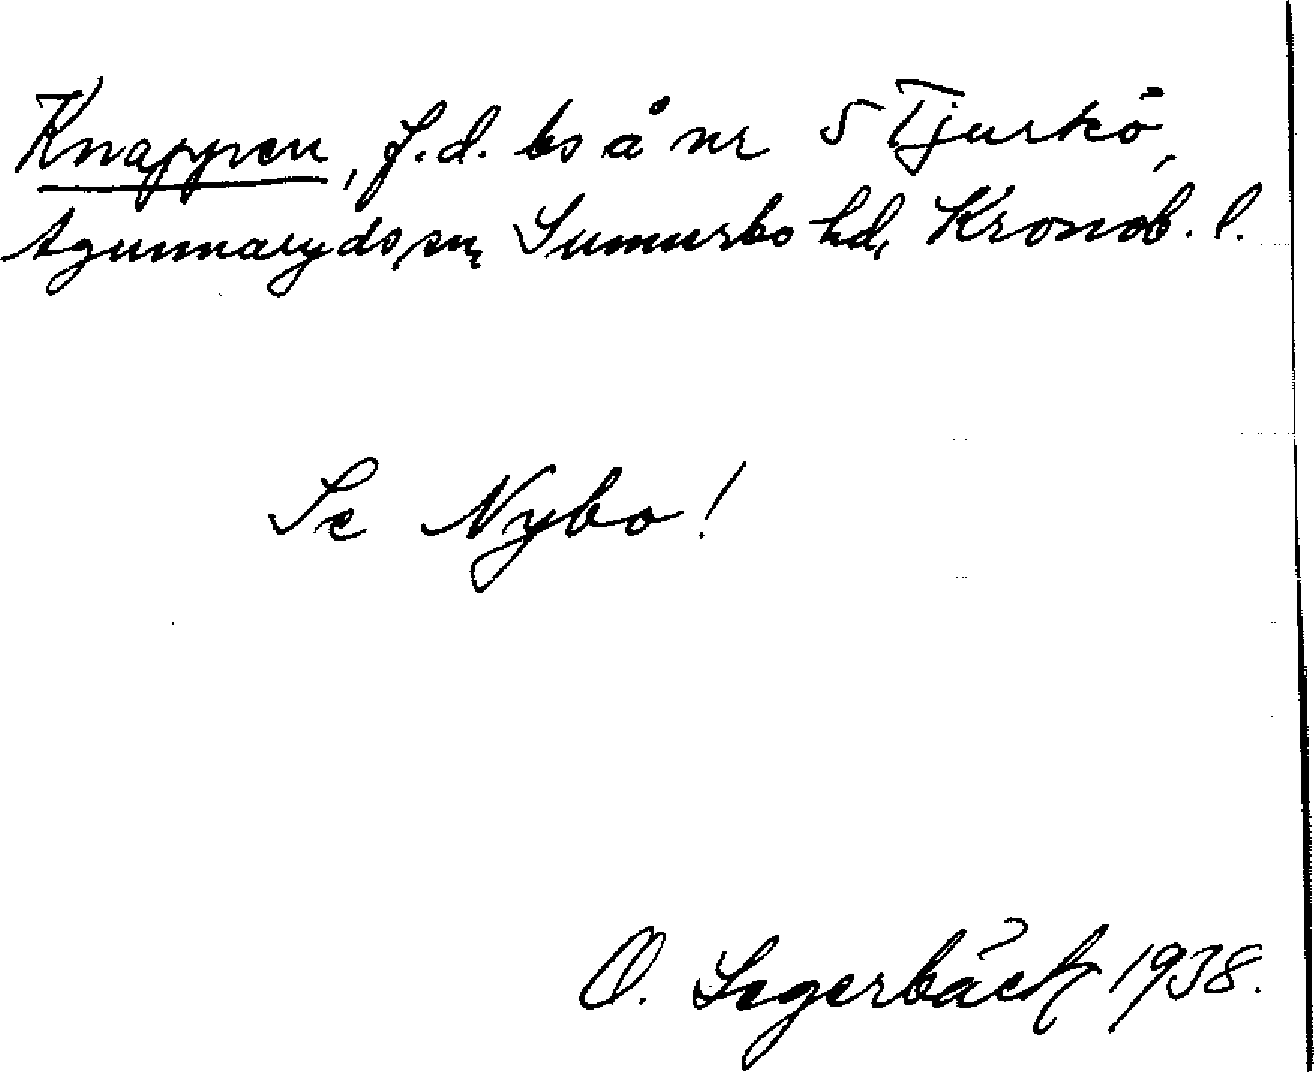 Knappen, f.d. bs å nr 5 Tjurkö,
Agunnaryds sn, Sunnerbo hd, Kronob. l.
Se Nybo!
O. Segerbäck 1938.